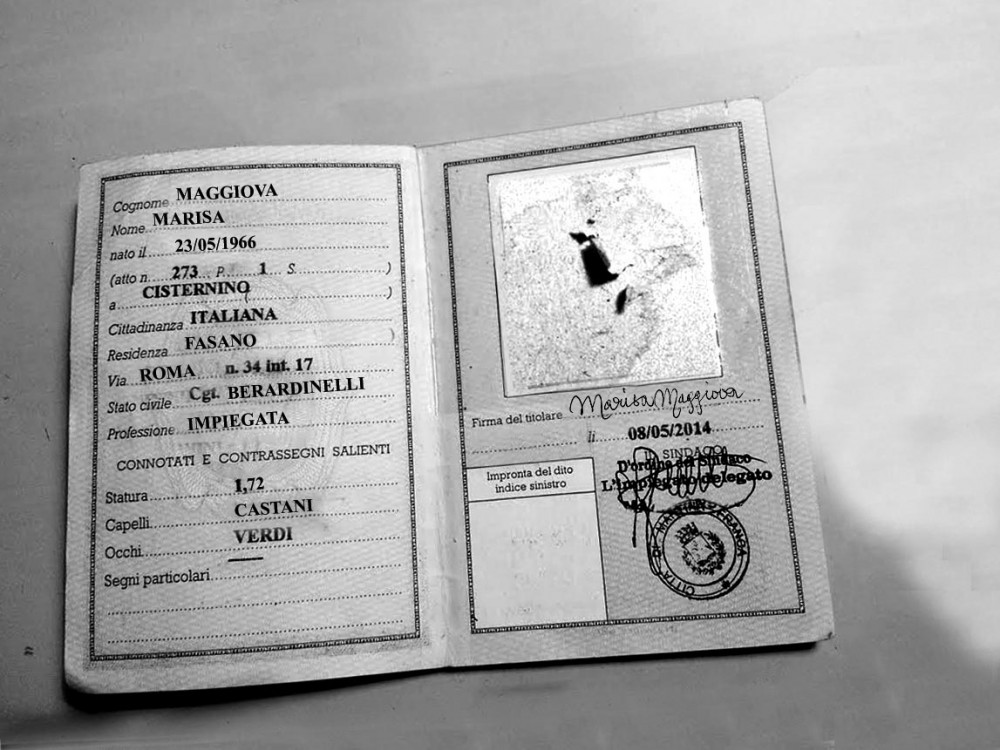 Cognome MAGGIOVA
Nome MARISA
nato il 23/05/1966
(atto n. 273 P. 1 S. )
a CISTERNINO ( )
Cittadinanza ITALIANA
Residenza FASANO )
Via ROMA n. 34 int. 17
Stato civile Cgt. BERARDINELLI
Professione IMPIEGATA
CONNOTATI E CONTRASSEGNI SALIENTI
Statura 1,72
Capelli CASTANI
Occhi VERDI
Segni particolari
Firma del titolare Marisa Maggiova
li 08/05/2014
SINDACO
D'ordine del Sindaco
L'impiegato delegato
Impronta del dito
indice sinistro
CITTA DI MARTINA FRANCA